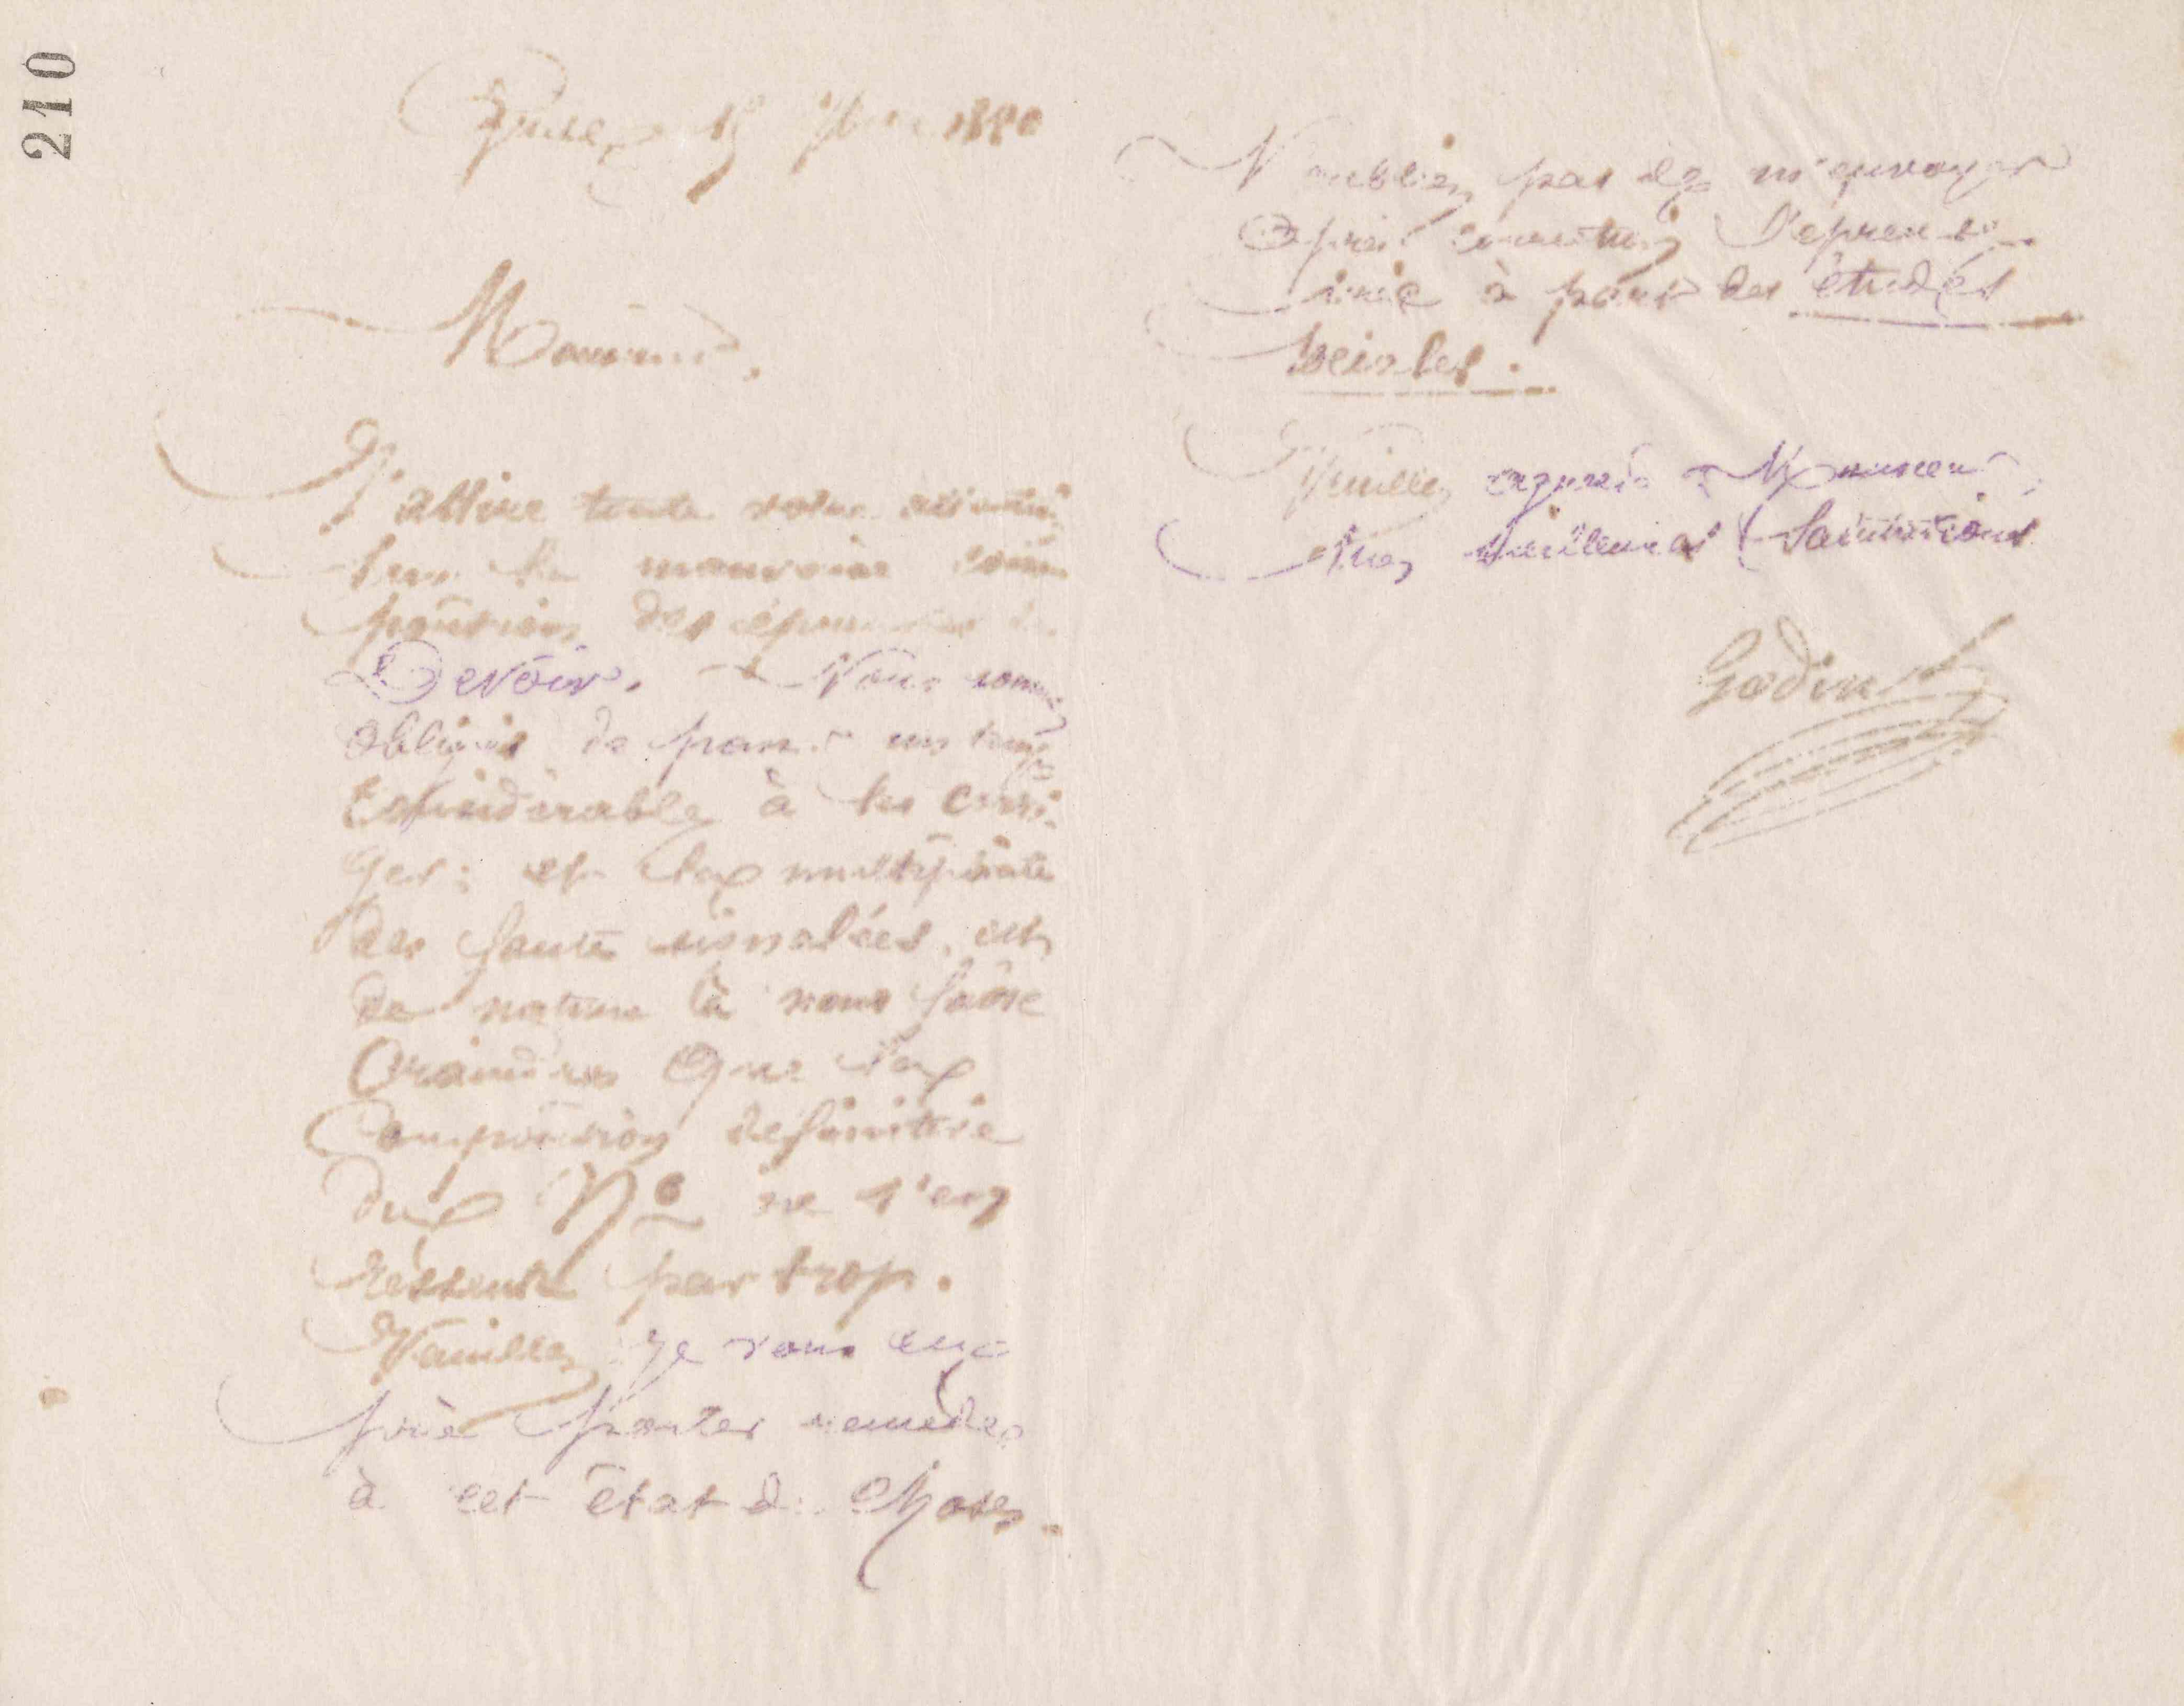 210
Guise 15 1880
Monsieur.
J'attire toute votre attention
sur la mauvaise com-
position des épreuves du
Devoir. Nous sommes
obligés de passer un temps
considérable à les corri-
ger ; et la multiplicité
des fautes signalées est
de nature à nous faire
craindre que la
composition définitive
du N° ne s'en
ressente par trop.
Veuillez je vous en
prie porter remède
à cet état de choses.
N'oubliez pas de m'envoyer
après correction l'épreuve
mise à part des études
sociales.
Veuillez agréer Monsieur
mes meilleures salutations
Godin